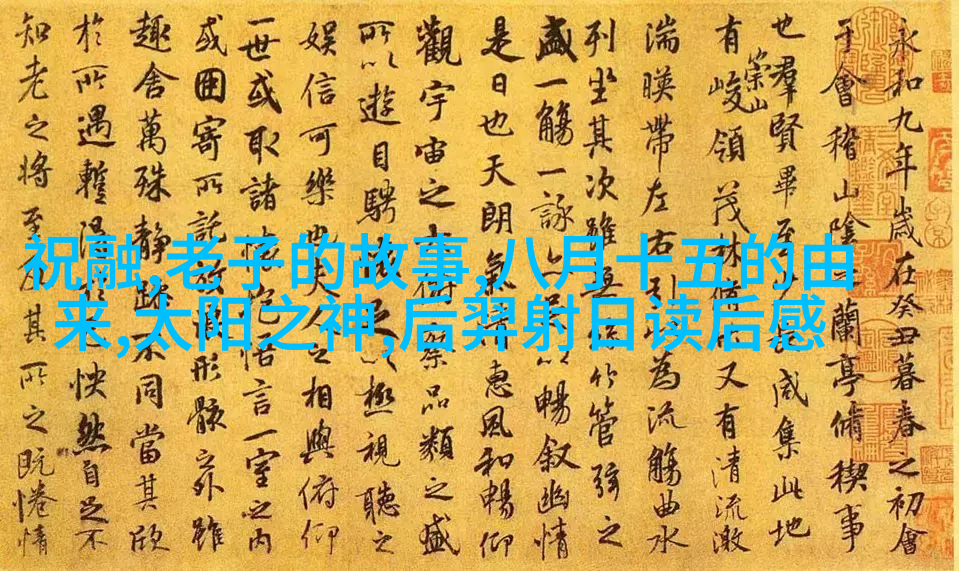 祝融,老子的故事,八月十五的由
来,太阳之神,后羿射日读后感
永和九年歲在癸丑暮春之初會
于會稽山陰之蘭亭脩稧事
也羣賢畢至少長咸集此地
有崇山峻領茂林脩竹又有清流激
湍暎帶左右引以為流觴曲水
列坐其次雖無絲竹管弦之
盛一觴一詠亦足以暢叙幽情
是日也天朗氣清惠風和暢仰
觀宇宙之大俯察品類之盛
所以遊目騁懷足以極視聽之
娛信可樂也夫人之相與俯仰
一世或取諸懷抱悟言一室之內
或因寄所託放浪形骸之外雖
趣舍萬殊靜躁不同當其欣
於所遇蹔得於己怏然自足不
知老之將至及其所之既惓情